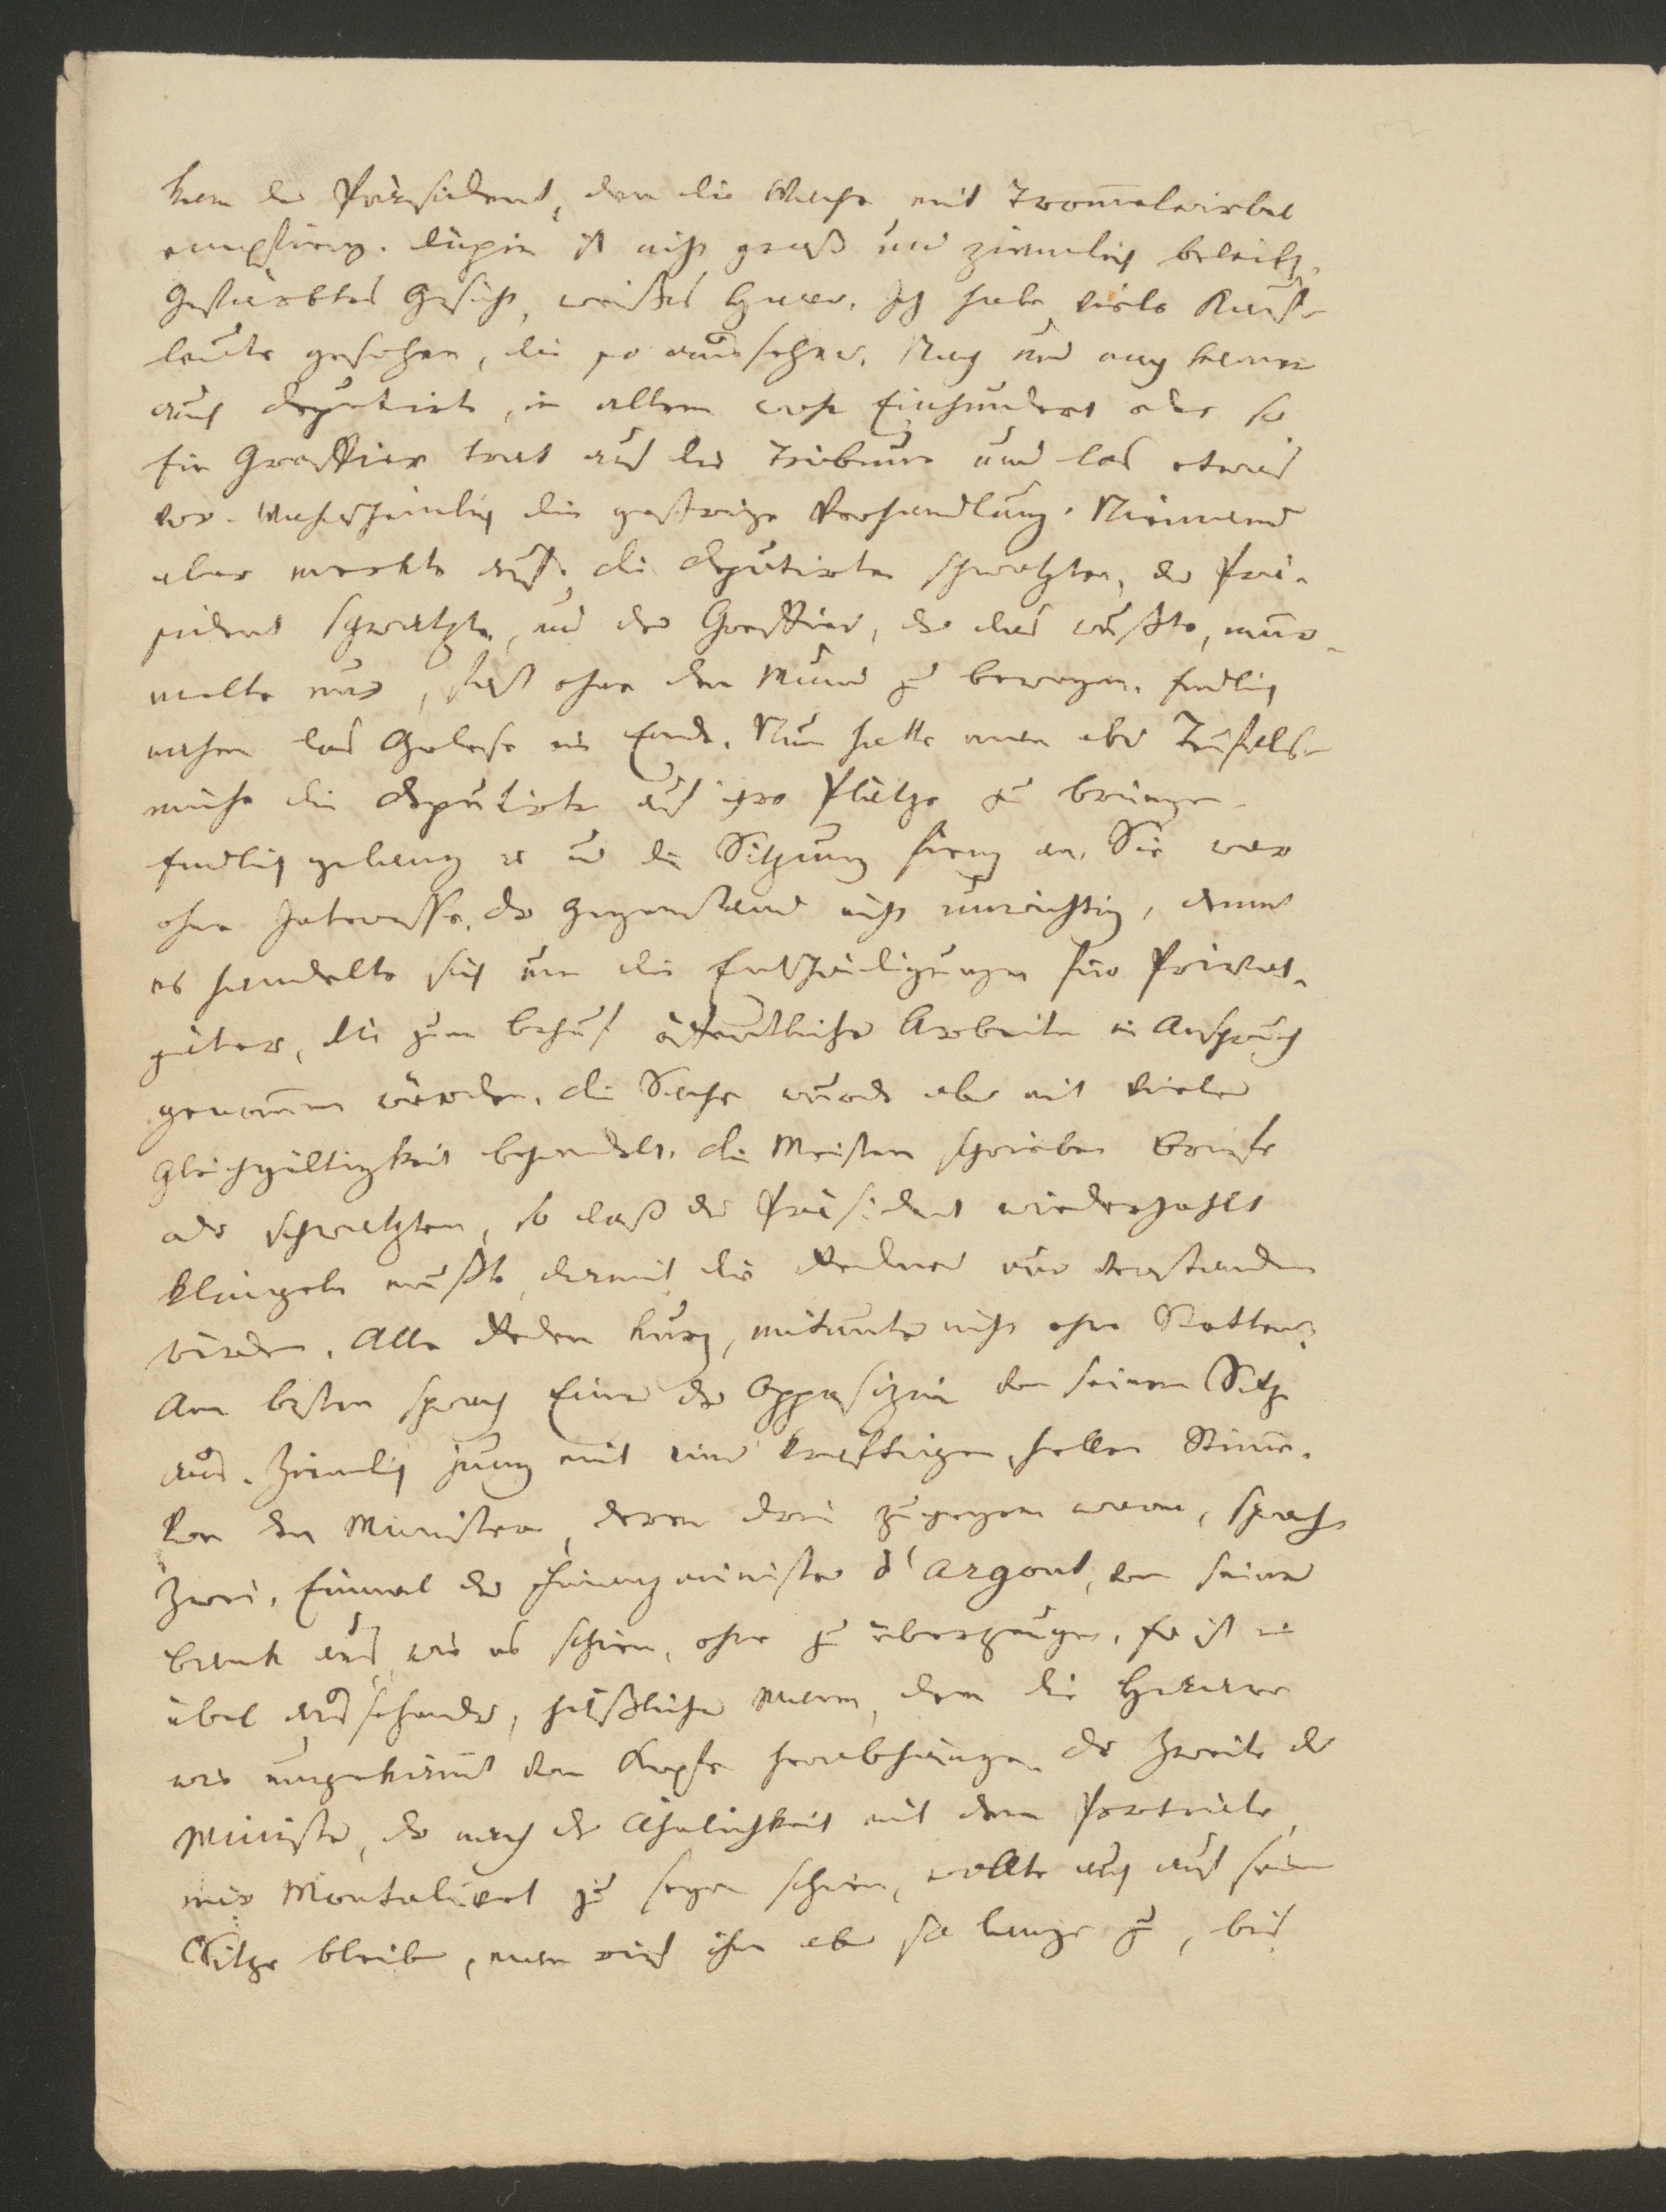 kam der Präsident, den die Wache mit Trom̅elwirbel
empfieng. Dupin ist nicht groß und ziemlich beleibt,
Gefärbtes Gesicht, weißes Haar. Ich habe viele Kauf-
leute gesehen, die so aussehen. Nach und nach kamen
auch Deputirte, in allem wohl Einhundert oder so
Ein Greffier trat auf die Tribune und las etwas
vor. Wahrscheinlich die gestrige Verhandlung. Niemand
aber merkte auf, die Deputirten schwatzten, der Prä-
sident schwatzte, und der Greffier, der das wußte, mur-
melte nur, fast ohne den Mund zu bewegen. Endlich
nahm das Gelese ein Ende. Nun hatte man aber Teufels-
mühe die Deputirten auf ihre Plätze zu bringen.
Endlich gelang es und die Sitzung fieng an. Sie war
ohne Interesse. Der Gegenstand nicht unwichtig, denn
es handelte sich um die Entschädigungen für Privat-
güter, die zum Behuf öffentlicher Arbeiten in Anspruch
genom̅en würden. Die Sache wurde aber mit vieler
Gleichgültigkeit behandelt. Die Meisten schrieben Briefe
oder schwatzten, so daß der Präsident wiederhohlt
klingeln mußte, damit die Redner nur verstanden
würden. Alle Reden kurz, mitunter nicht ohne Stottern.
Am besten sprach Einer der Opposizion von seinem Sitz
aus. Ziemlich jung mit einer kräftigen, hellen Stim̅e.
Von den Ministern, deren drei zugegen waren, sprachen
zwei. Einmal der Finanzminister d'Argout, von seiner
Bank aus, wie es schien, ohne zu überzeugen. Er ist ein
übel aussehender, häßlicher Mann, dem die Haare
wie ungekäm̅t vom Kopfe herabhängen. Der Zweite der
Minister, der nach der Ähnlichkeit mit dem Portraite,
mir Montalivet zu seyn schien, wollte auch auf seinem
Sitze bleiben, man rief ihm aber so lange zu, bis